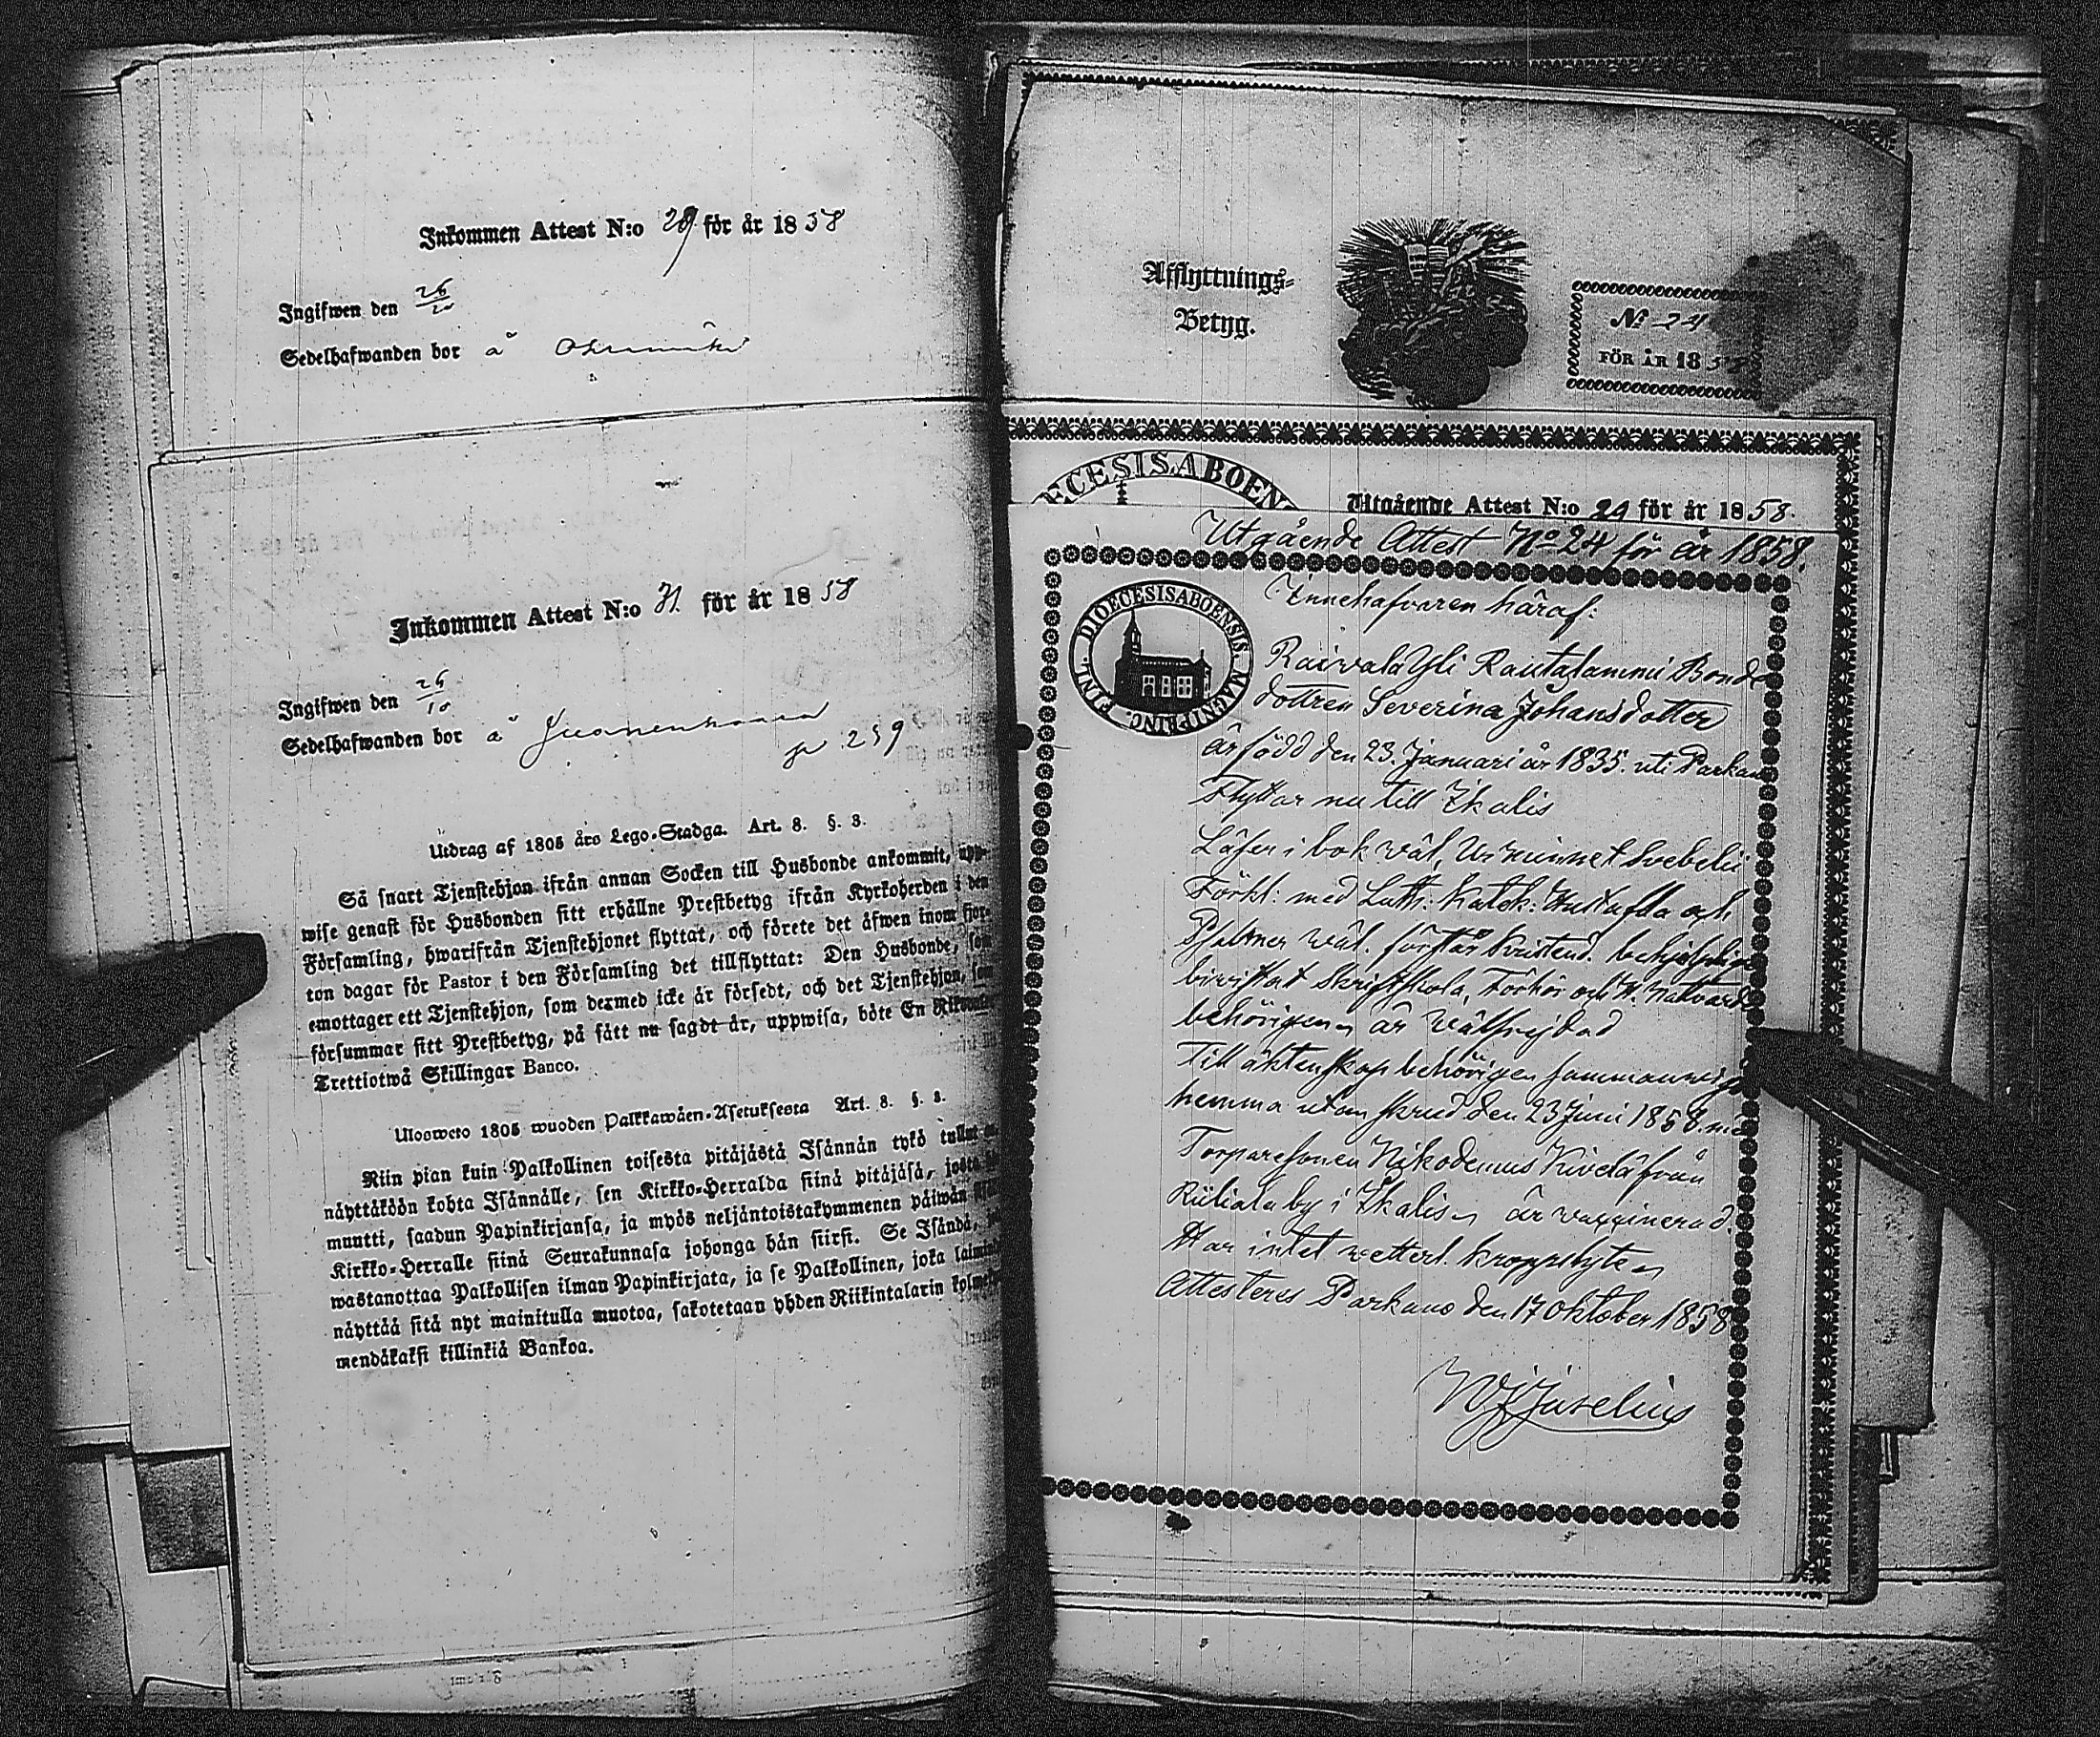 Inkommen Attest N:o 29 för år 1858
Ingifwen den 26/10
Sedelhafwanden bor å
Inkommen Attest N:o 31. för år 1858
Ingifwen den 26/10
Sedelhafwanden bor å
p. 259
Utdrag af 1805 års Lego-Stadga. Art. 8. §. 3.
Så snart Tjenstehjon ifrån annan Socken till Husbonde ankommit, upp-
wise genast för Husbonden sitt erhållne Prestbetyg ifrån Kyrkoherden i den
Församling, hwarifrån Tjenstehjonet flyttat, och förete det åfwen inom fjor-
ton dagar för Pastor i den Församling det tillflyttat: Den Husbonde, som
emottager ett Tjenstehjon, som dermed icke är försedt, och det Tjenstehjon, som
försummar sitt Prestbetyg, på sätt nu sagdt är, uppwisa, böte En
Trettiotwå Skillingar Banco.
Ulosweto 1805 wuoden Palkkawäen-Asetuksesta Art. 8. §. 3.
Niin pian kuin Palkollinen toisesta pitäjästä Isännän tykö tullut
näyttäköön kohta Isännälle, sen Kirkko-Herralda siinä pitäjäsä, josta
muutti, saadun Papinkirjansa, ja myös neljäntoistakymmenen päiwän
Kirkko-Herralle siinä Seurakunnasa johonga hän siirsi. Se Isändä,
wastanottaa Palkollisen ilman Papinkirjata, ja se Palkollinen, joka
näyttää sitä nyt mainitulla muotoa, sakotetaan yhden Riikintalarin
mendäkaksi killinkiä Bankoa.
Afflyttnings-
Betyg.
№ 24
FÖR ÅR 1858
ECESISABOEN
Utgående Attest N:o 24 för år 1858.
Utgående Attest No 24 för år 1858.
FINL. DIOECESISABOENSIS. MAGNIPRINC.
Innehafvaren häraf:
Raivala Yli Rautalammi Bonde
dottren Severina Johansdotter
är född den 23. Januari år 1835. uti Parkano
Flyttar nu till Ikalis
Läser i bok väl, Ur minnet Svebelii
Förkl: med Luth: Katek: Hustafla och
Psalmer väl. förstår Kristend.
bivistat Skriftskola, Förhör och H. Nattvard
behörigen är välfrejdad
Till äktenskap behörigen
hemma utan skrud den 23 Juni 1858. med
Torparesonen Nikodemus Kivelä från
by i Ikalis är vaccinerad.
Har intet vetterl. kroppslyte
Attesteres Parkano den 17 Oktober 1858